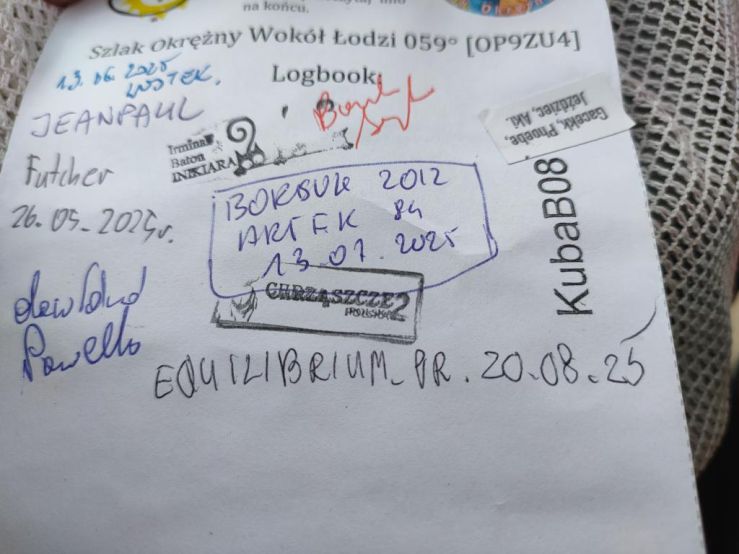 na końcu.
Szlak Okrężny Wokół Łodzi 059° [OP9ZU4]
Logbook:
13.06.2025
WOJTEK.
JEANPAUL
Irmina
Baton
INIKIARA
Gacekk, Phoebe,
Jeździec, Aki
Futcher
26.05.2025r.
BORSUK 2012
ARTEK 84
13.07.2025
KubaB08
CHRZĄSZCZE2
Pawełko
EQUILIBRIUM_PR. 20.08.25